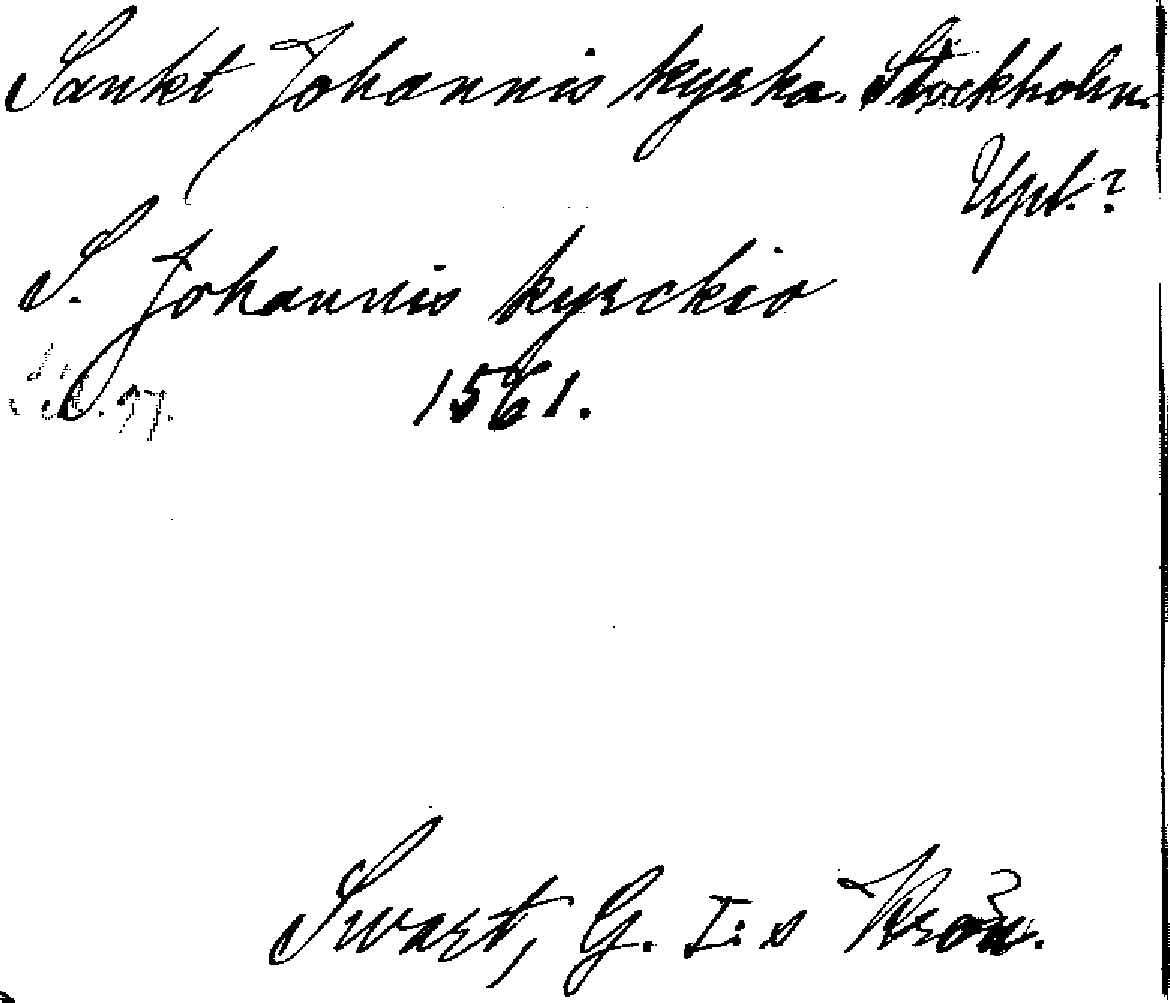 Sankt Johannis kyrka. Stockholm.
Upl.?
S. Johannis kyrckio
1561.
Swart, G. I:s Krön.